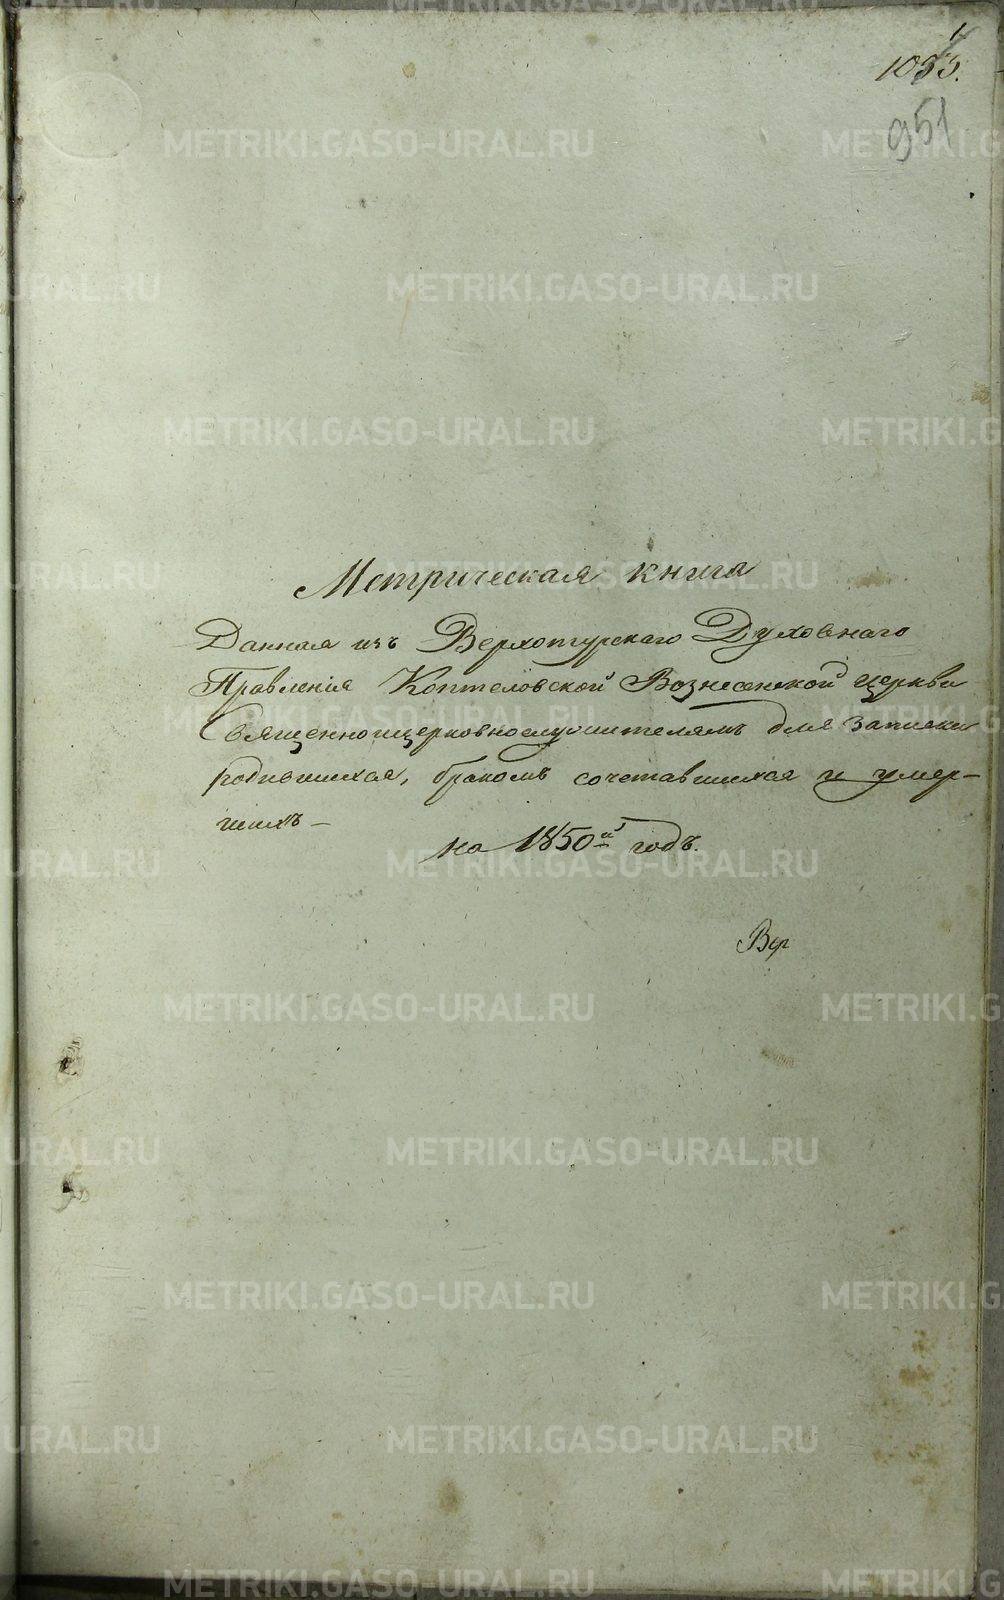 1
1053.
951
Метрическая книга
Данная изъ Верхотурскаго Духовнаго
Правленія Коптеловской Вознесенской церкви
Священноицерковнослужителямъ для записки
родившихся, бракомъ сочетавшихся и умер-
шихъ –
на 1850й годъ.
Вер
METRIKI.GASO-URAL.RU